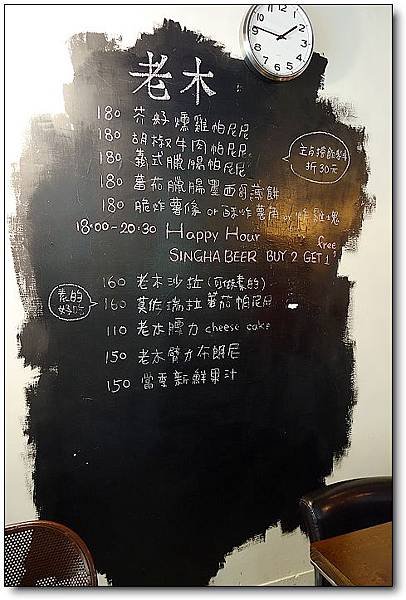 老木
180 芥籽燻雞帕尼尼
180 胡椒牛肉帕尼尼
180 義式臘腸帕尼尼
主食搭飲料
折30元
180 蕃茄臘腸墨西哥煎餅
180 脆炸薯條 or 酥炸薯角 or 炸雞塊
18:00-20:30 Happy Hour
SINGHA BEER BUY 2 GET 1 free
160 老木沙拉(可做素的)
素的
好吃
160 莫佐瑞拉蕃茄帕尼尼
110 老木腰力 cheese cake
150 老木臂力布朗尼
150 當季新鮮果汁